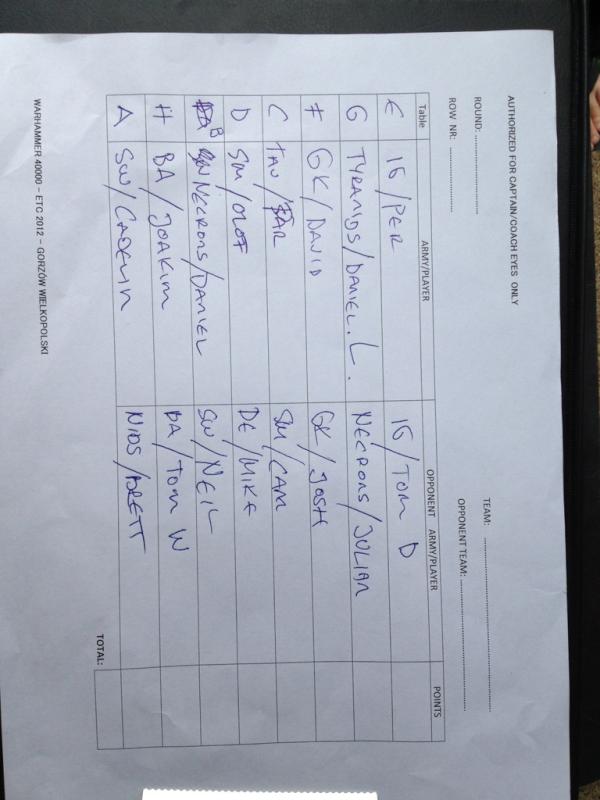 AUTHORIZED FOR CAPTAIN/COACH EYES ONLY
ROUND: ..................
TEAM: ..................
ROW NR: ..................
OPPONENT TEAM: ..................
Table ARMY/PLAYER OPPONENT ARMY/PLAYER POINTS
E IG/PER IG/TOM D
G TYRANIDS/DANIEL.L. NECRONS/JULIAN
F GK/DAVID GK/JOSH
C TAU/PÄR SM/CAM
D SM/OLOF DE/MIKE
B NECRONS/DANIEL SW/NEIL
H BA/JOAKIM BA/TOM W
A SW/ NIDS/BRETT
TOTAL:
WARHAMMER 40000 – ETC 2012 – GORZÓW WIELKOPOLSKI